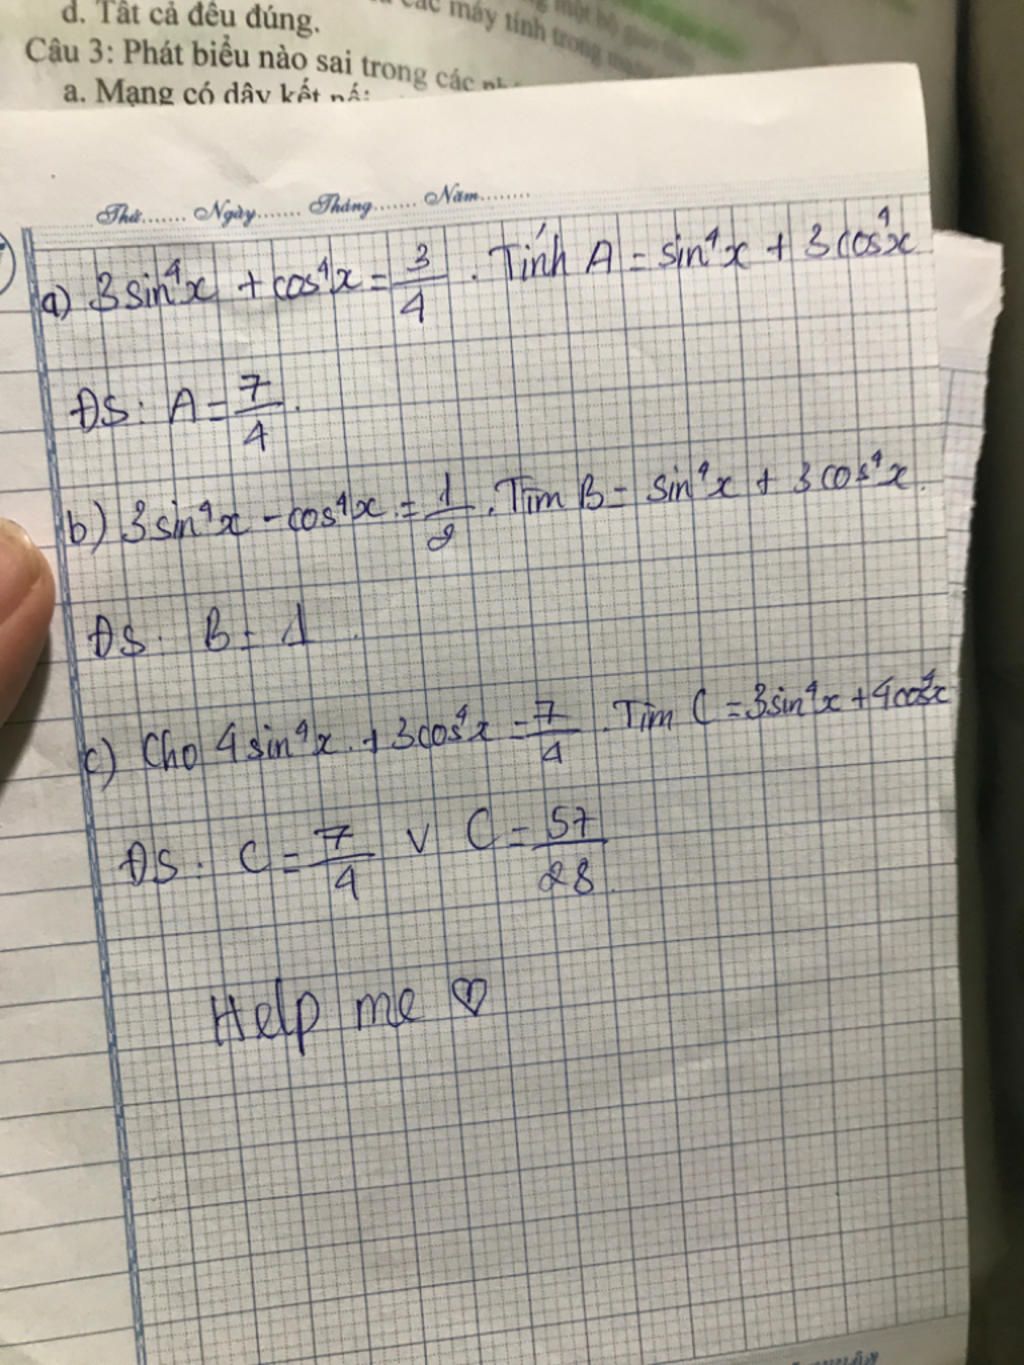 d. Tất cả đều đúng.
các máy tính trong
Câu 3: Phát biểu nào sai trong các
a. Mạng có dây kết nối:
Thứ....... Ngày....... Tháng....... Năm........
a) 3sin⁴x + cos⁴x = 3/4 . Tính A = sin⁴x + 3cos⁴x
ĐS: A = 7/4.
b) 3sin⁴x - cos⁴x = 1/2 . Tìm B = sin⁴x + 3cos⁴x.
ĐS: B = 1.
c) Cho 4sin⁴x + 3cos⁴x = 7/4 . Tìm C = 3sin⁴x + 4cos⁴x
ĐS: C = 7/4 V C = 57/28.
Help me ♡